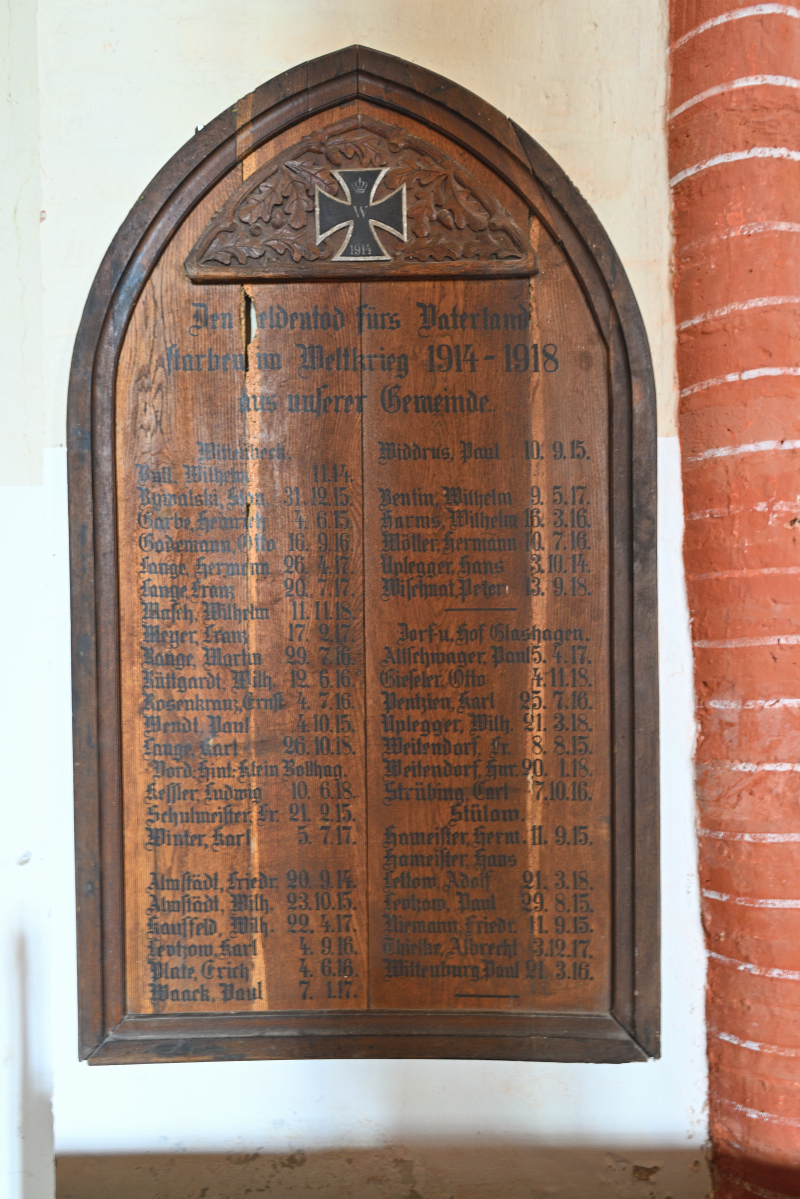 W
1914
Den Heldentod fürs Vaterland
starben im Weltkrieg 1914-1918
aus unserer Gemeinde.
Wittenbeck.
Büll, Wilhelm 11.14.
Kywalski, 31.12.15.
Garbe, Heinrich 4. 6.15.
Gademann, Otto 16. 9.16.
Lange, Hermann 26. 4.17.
Lange, Franz 20. 7.17.
Masch, Wilhelm 11.11.18.
Meyer, Franz 17. 2.17.
Range, Martin 29. 7.16.
Rüttgardt, Wilh. 12. 6.16.
Rosenkranz, Ernst 4. 7.16.
Wendt, Paul 4.10.15.
Lange, Karl 26.10.18.
Vord.-Hint.-Klein Bollhag.
Kessler, Ludwig 10. 6.18.
Schulmeister, Fr. 21. 2.15.
Winter, Karl 5. 7.17.
Almstädt, Friedr. 20. 9.14.
Almstädt, Wilh. 23.10.15.
Hausfeld, Wilh. 22. 4.17.
Levtzow, Karl 4. 9.16.
Plate, Erich 4. 6.16.
Waack, Paul 7. 1.17.
Widdrus, Paul 10. 9.15.
Bentin, Wilhelm 9. 5.17.
Harms, Wilhelm 16. 3.16.
Möller, Hermann 10. 7.16.
Uplegger, Hans 3.10.14.
Wischnat, Peter 13. 9.18.
Dorf u. Hof Glashagen.
Altschwager, Paul 5. 4.17.
Gieseler, Otto 4.11.18.
Pentzien, Karl 25. 7.16.
Uplegger, Wilh. 21. 3.18.
Weitendorf, Fr. 8. 8.15.
Weitendorf, Hnr. 20. 1.18.
Strübing, Carl 7.10.16.
Stülow.
Hameister, Herm. 11. 9.15.
Hameister, Hans
Lettow, Adolf 21. 3.18.
Levtzow, Paul 29. 8.15.
Niemann, Friedr. 11. 9.15.
Thielke, Albrecht 3.12.17.
Wittenburg, Paul 21. 3.16.